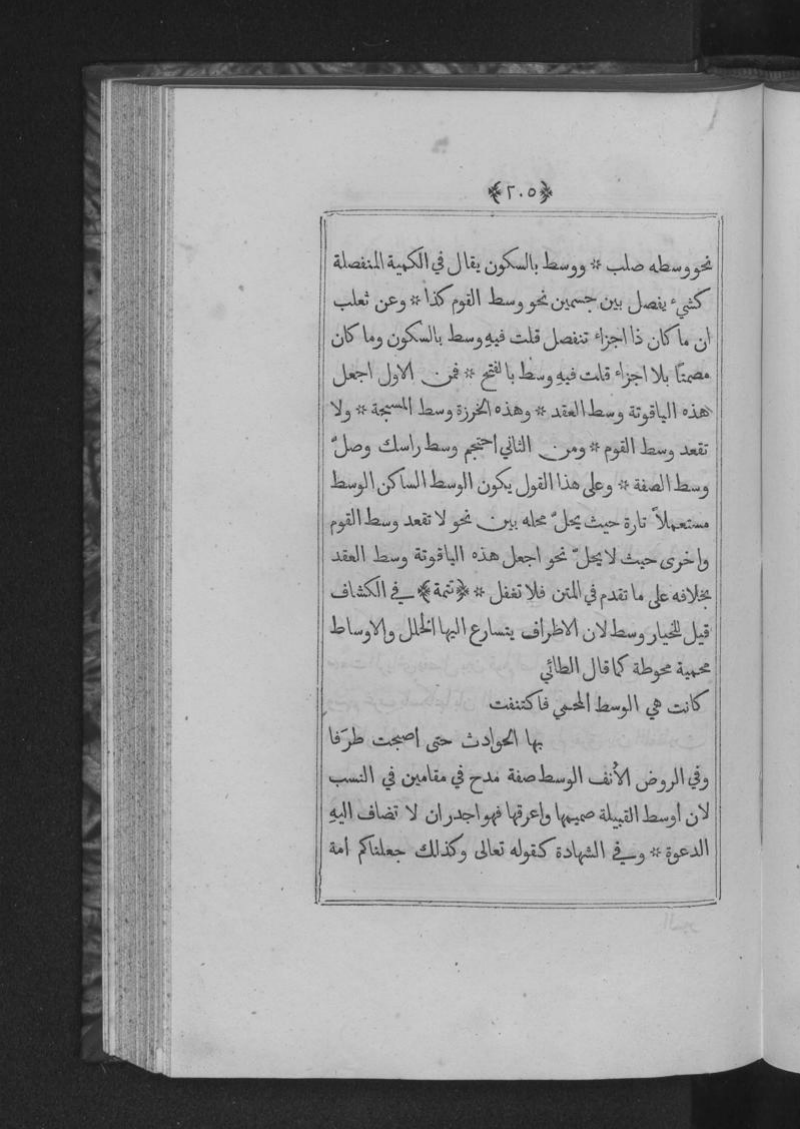 ﴿٢٠٥﴾
نحو وسطه صلب * ووسط بالسكون يقال في الكمية المنفصلة
كشيء يفصل بين جسمين نحو وسط القوم كذا * وعن ثعلب
ان ما كان ذا اجزاء تنفصل قلت فيه وسط بالسكون وما كان
مصمتًا بلا اجزاء قلت فيه وسط بالفتح * فمن الاول اجعل
هذه الياقوتة وسط العقد * وهذه الخرزة وسط المسبحة * ولا
تقعد وسط القوم * ومن الثاني احتجم وسط راسك وصلّ
وسط الصفة * وعلى هذا القول يكون الوسط الساكن الوسط
مستعملاً تارة حيث يحلّ محله بين نحو لا تقعد وسط القوم
واخرى حيث لا يحلّ نحو اجعل هذه الياقوتة وسط العقد
بخلافه على ما تقدم في المتن فلا تغفل * ﴿تتمة﴾ في الكشاف
قيل للخيار وسط لان الاطراف يتسارع اليها الخلل والاوساط
محمية محوطة كما قال الطائي
كانت هي الوسط المحمي فاكتنفت
بها الحوادث حتى اصبحت طرَفا
وفي الروض الأنف الوسط صفة مدح في مقامين في النسب
لان اوسط القبيلة صميمها واعرقها فهو اجدر ان لا تضاف اليه
الدعوة * وفي الشهادة كقوله تعالى وكذلك جعلناكم امة